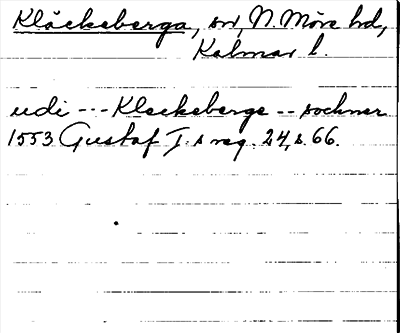 Kläckeberga, sn, N. Möre hd,
Kalmar l.
udi --- Kleckeberge -- sochner
1553 Gustaf I:s reg. 24, s. 66.